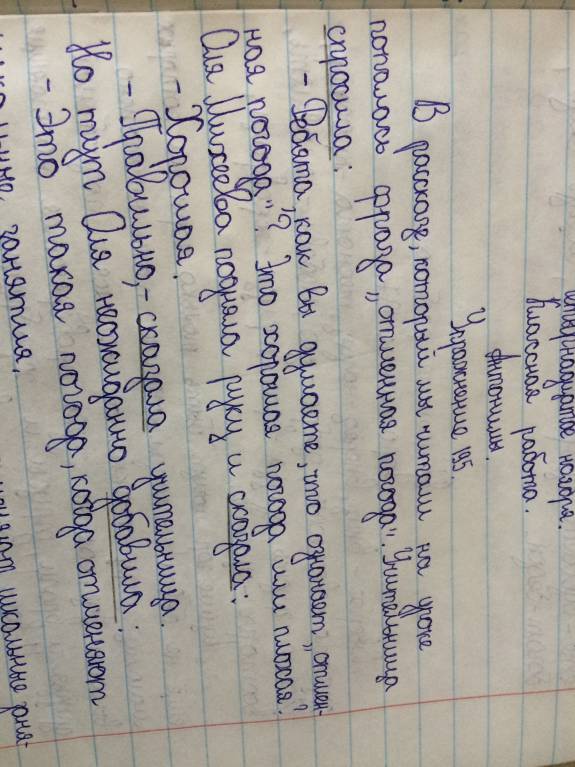 четырнадцатое ноября.
Классная работа.
Антонимы.
Упражнение 195.
В рассказе, который мы читали на уроке
попалась фраза „отменная погода". Учительница
спросила:
- Ребята, как вы думаете, что означает „отмен-
ная погода"? Это хорошая погода или плохая?
Оля Михеева подняла руку и сказала:
- Хорошая.
- Правильно, - сказала учительница.
Но тут Оля неожиданно добавила:
- Это такая погода, когда отменяют
школьные занятия.
школьные заня-